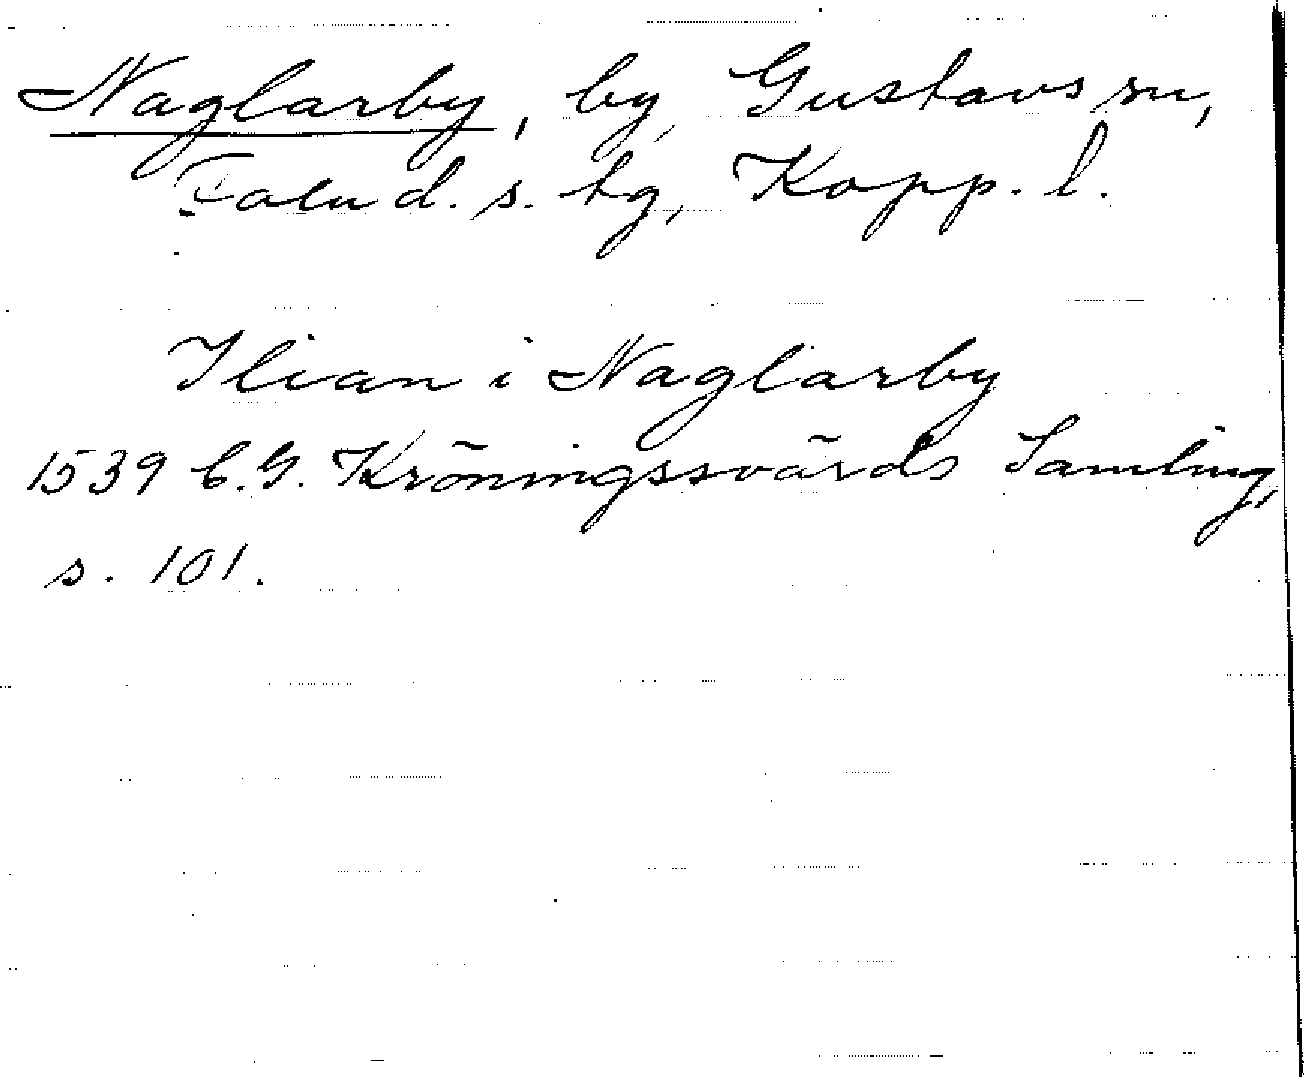 Naglarby, by, Gustavs sn,
Falu d. s. tg, Kopp. l.
Ilian i Naglarby
1539 C.G. Kröningssvärds Samling,
s. 101.